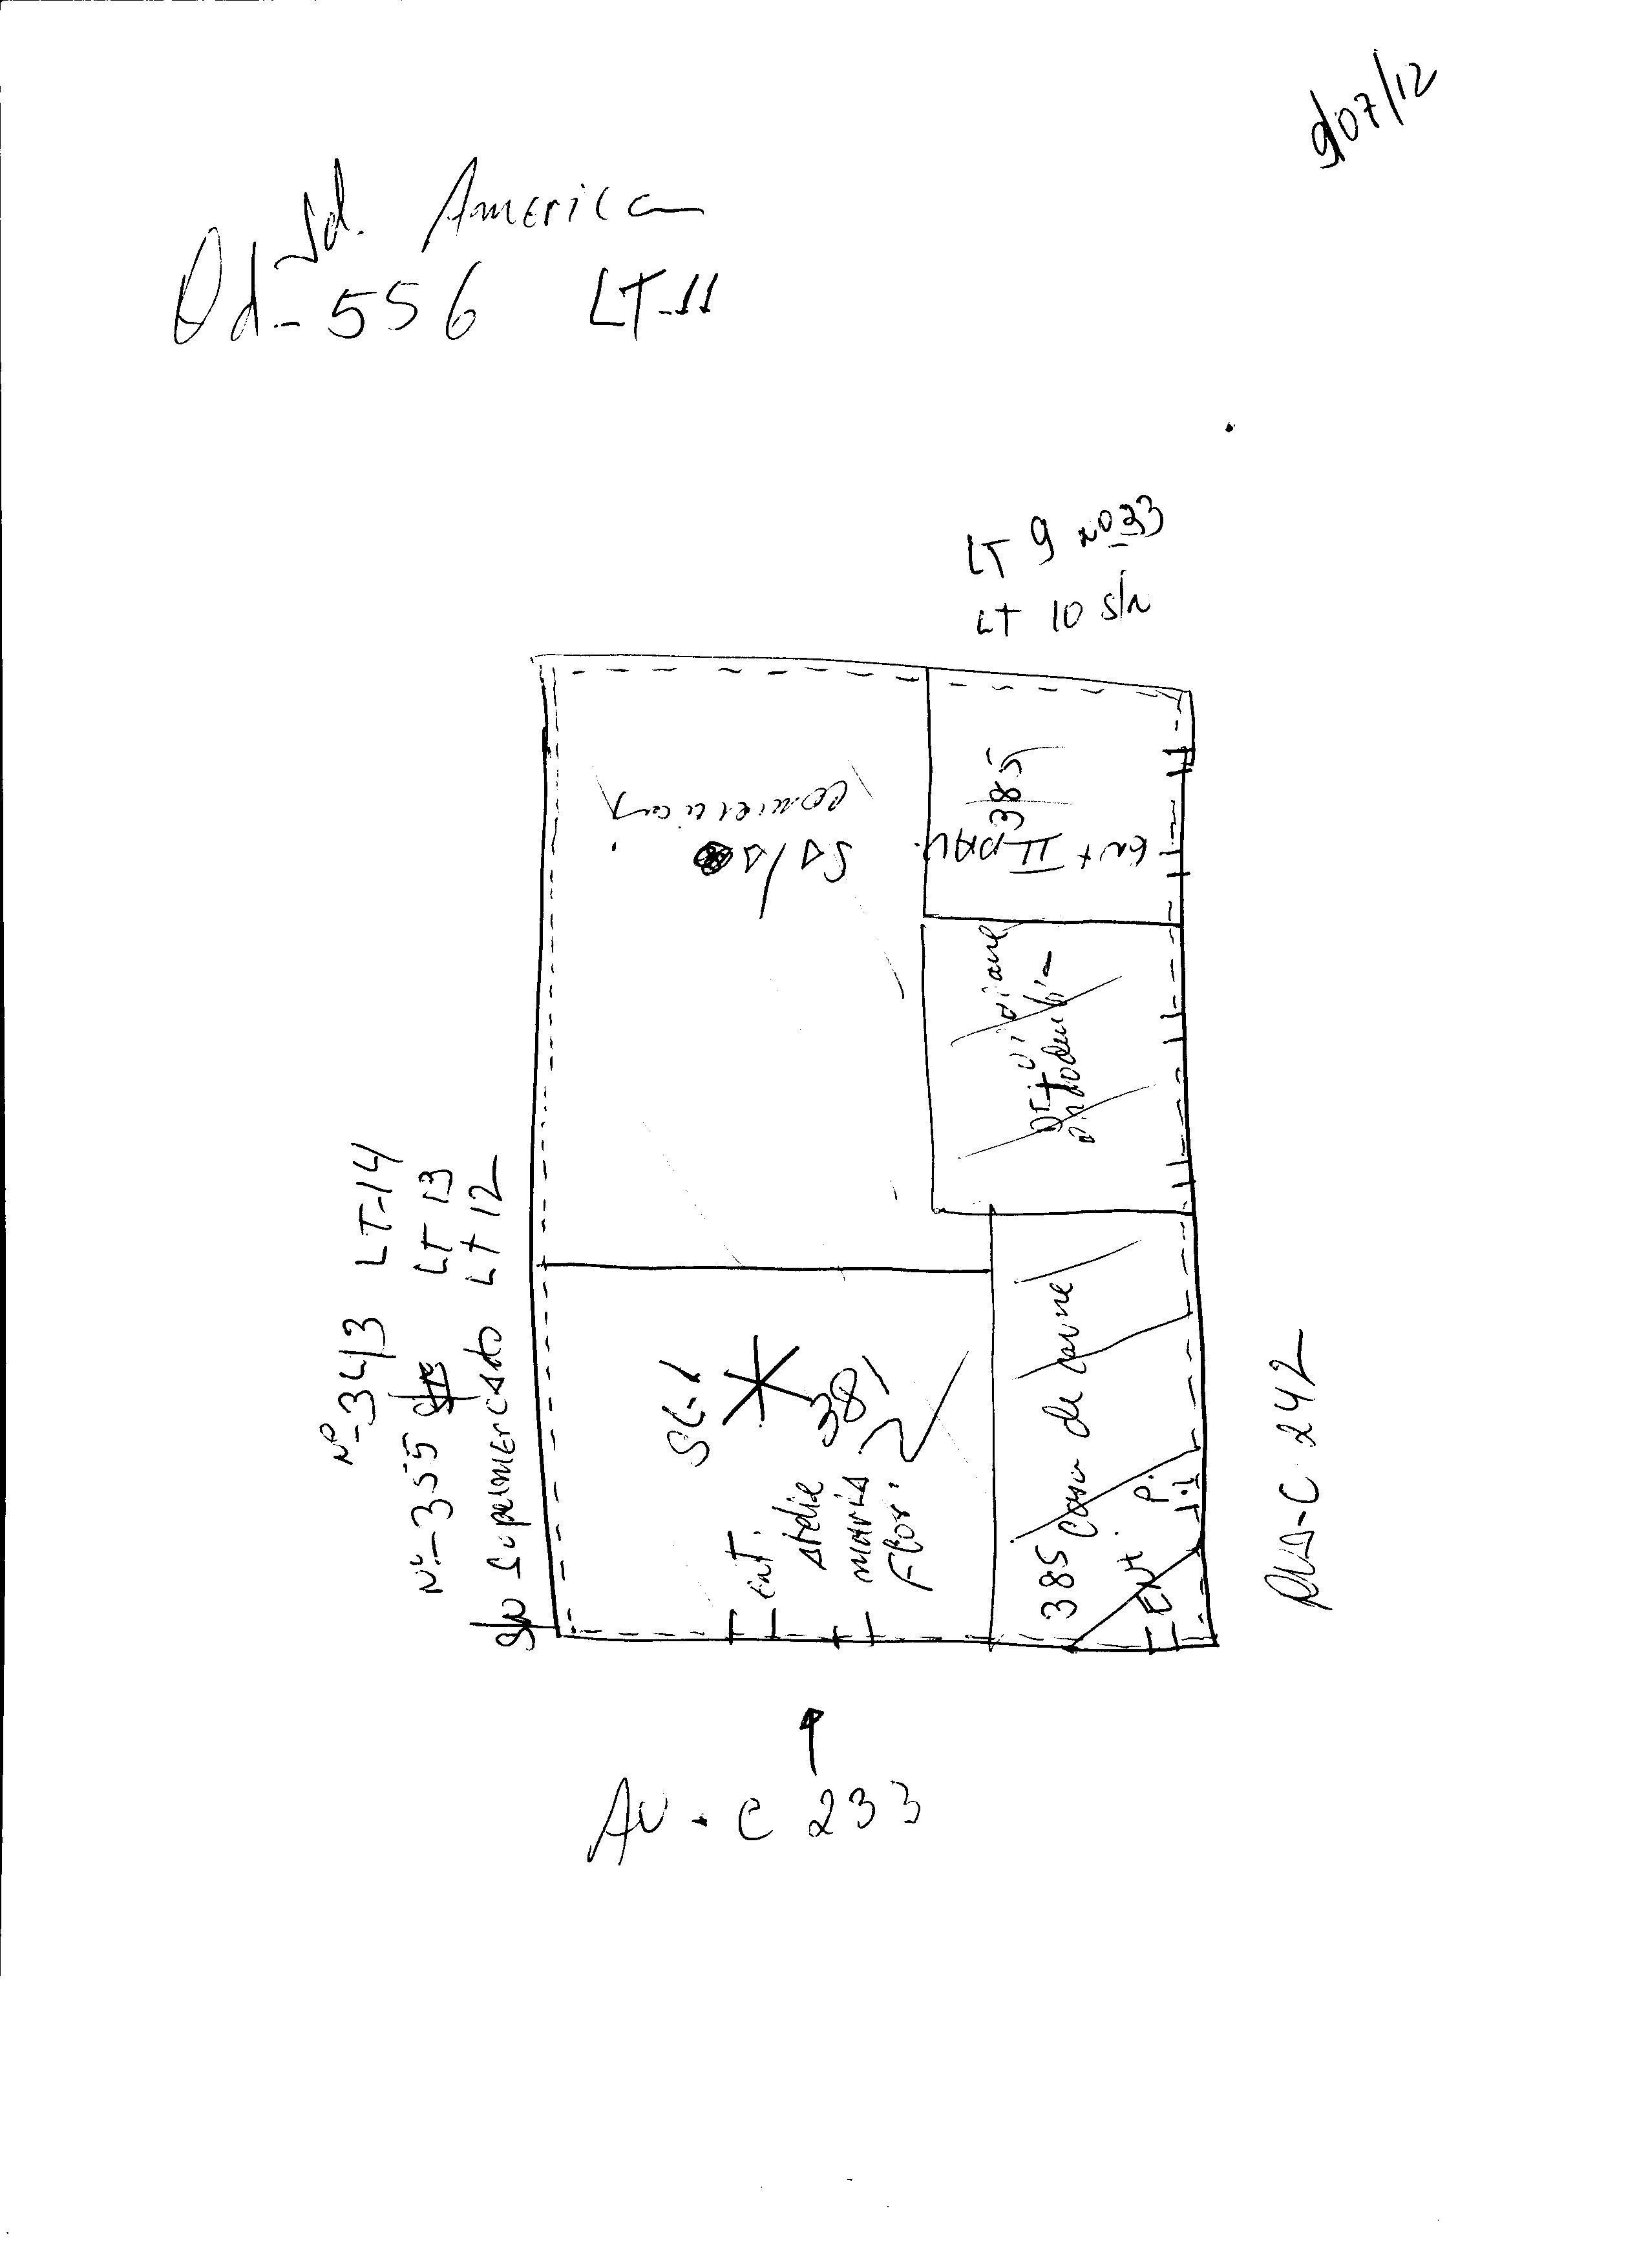 9/07/12
Jd. America
Qd-556 LT-11
LT 9 Nº 33
LT 10 S/N
385
Ent II
Sala
comercial
Casa de carne
385
Ent. P.
SL-1
381
Ent.
Flor.
Nº-343 LT-14
Nº-355 LT 13
S/N Supermercado LT 12
RUA-C 242
AV. C 233